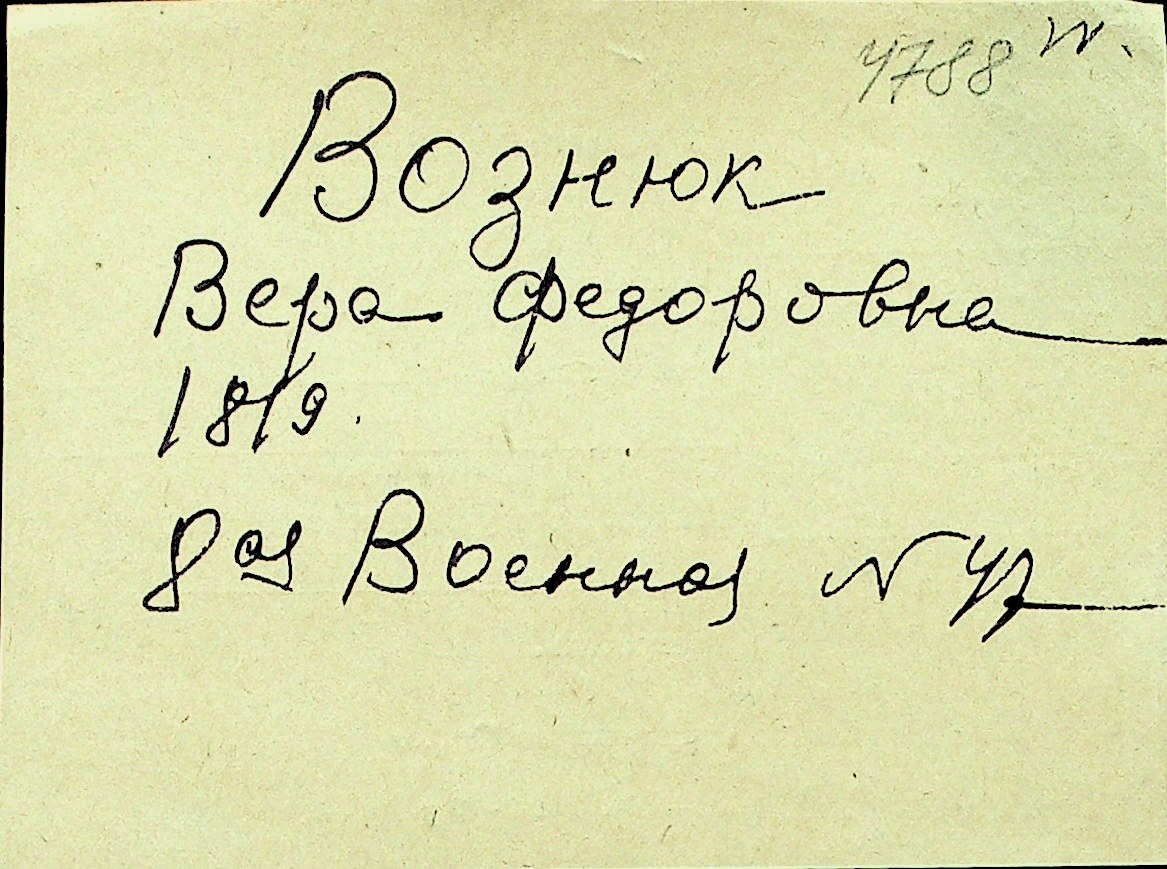 4788 и.
Вознюк
Вера Федоровна
1819.
8ая Военная N 47